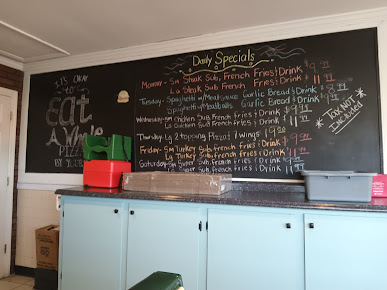 IT'S OKAY
to
Eat
A Whole
PIZZA
BY
Daily Specials
Monday - Sm Steak Sub, French Fries & Drink $9.99
Lg Steak Sub French Fries & Drink $11.99
Tuesday - Spaghetti w/Meatsauce Garlic Bread & Drink $8.99
Spaghetti w/Meatballs Garlic Bread & Drink $9.99
Wednesday - Sm Chicken Sub french fries & Drink $
Lg Chicken Sub french fries & Drink $11.99
Thursday - Lg 2 topping Pizza & 7 wings
Friday - Sm Turkey Sub french fries & Drink $9.99
Lg Turkey Sub french fries & Drink $11.99
Saturday - Sm Super Sub french fries & Drink $9.99
Lg Super Sub french fries & Drink $11.99
* Tax NOT Included *